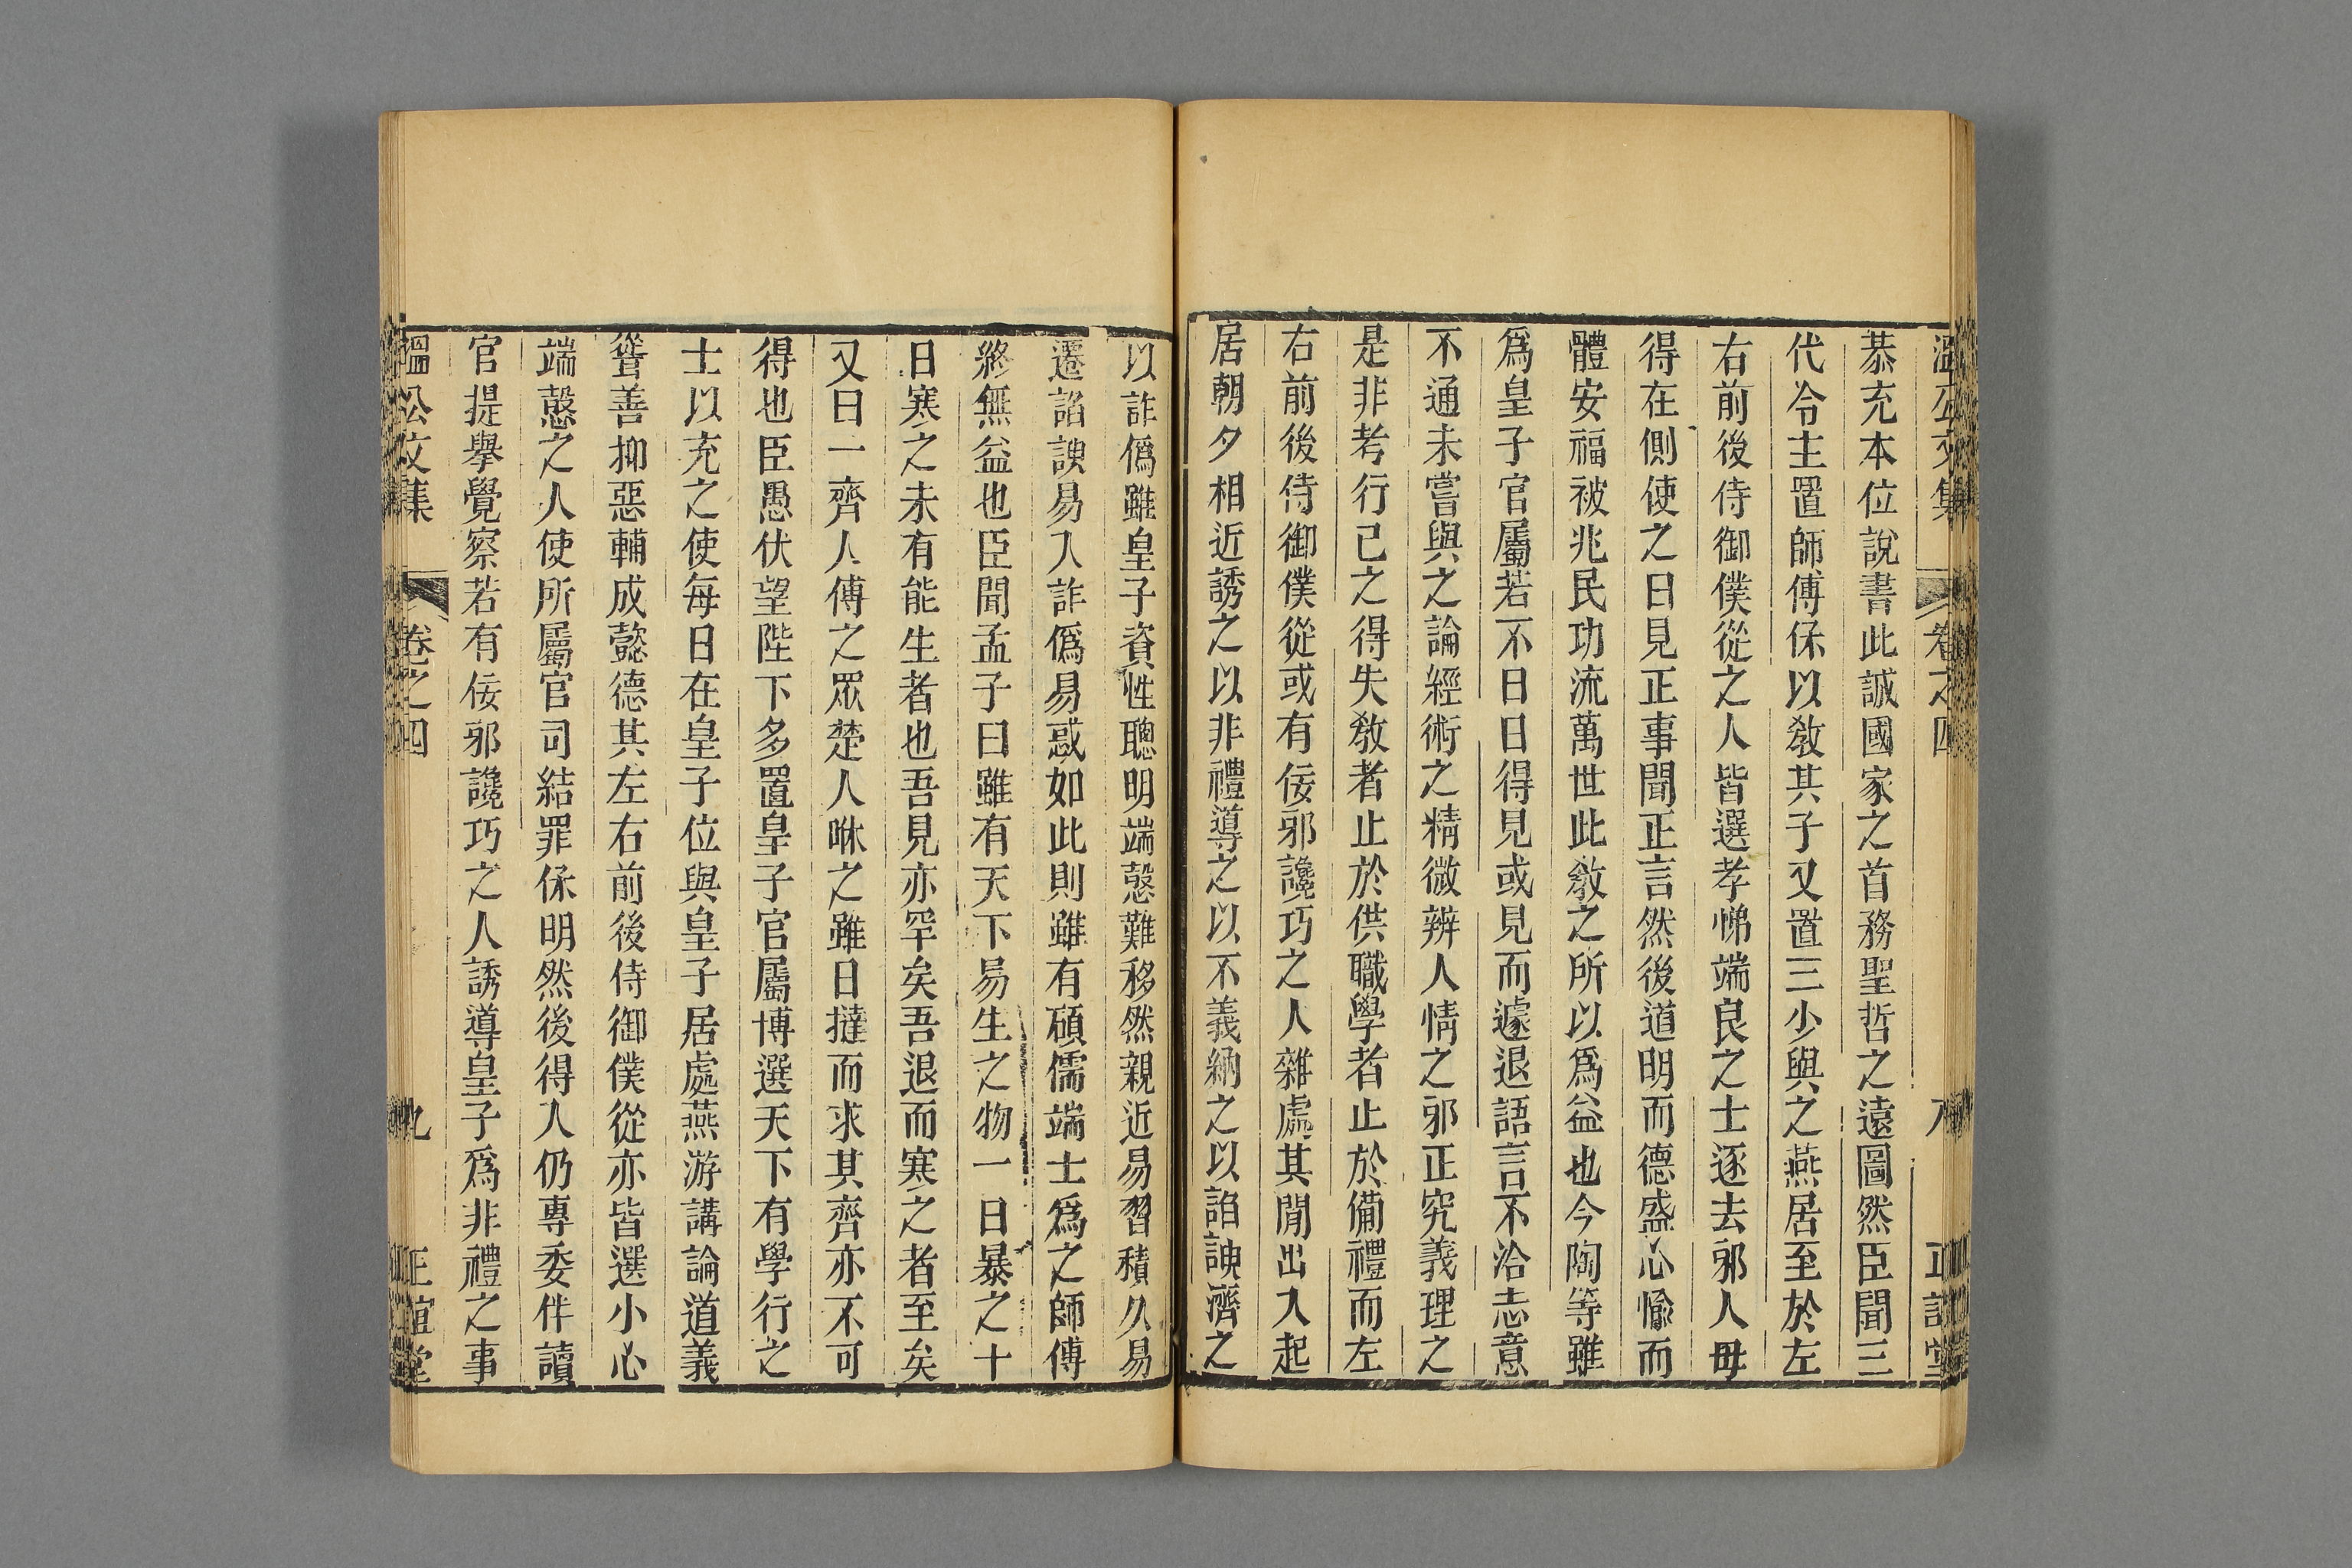 溫公文集 卷之四 八 正誼堂
恭充本位說書此誠國家之首務聖哲之遠圖然臣聞三
代令主置師傅保以敎其子又置三少與之燕居至於左
右前後侍御僕從之人皆選孝悌端良之士逐去邪人毋
得在側使之日見正事聞正言然後道明而德盛心愉而
體安福被兆民功流萬世此敎之所以爲益也今陶等雖
爲皇子官屬若不日日得見或見而遽退語言不洽志意
不通未嘗與之論經術之精微辨人情之邪正究義理之
是非考行己之得失敎者止於供職學者止於備禮而左
右前後侍御僕從或有佞邪讒巧之人雜處其閒出入起
居朝夕相近誘之以非禮導之以不義納之以諂諛濟之
以詐僞雖皇子資性聰明端慤難移然親近易習積久易
遷諂諛易入詐僞易惑如此則雖有碩儒端士爲之師傅
終無益也臣聞孟子曰雖有天下易生之物一日暴之十
日寒之未有能生者也吾見亦罕矣吾退而寒之者至矣
又曰一齊人傅之眾楚人咻之雖日撻而求其齊亦不可
得也臣愚伏望陛下多置皇子官屬博選天下有學行之
士以充之使每日在皇子位與皇子居處燕游講論道義
聳善抑惡輔成懿德其左右前後侍御僕從亦皆選小心
端慤之人使所屬官司結罪保明然後得入仍專委伴讀
官提舉覺察若有佞邪讒巧之人誘導皇子爲非禮之事
溫公文集 卷之四 九 正誼堂